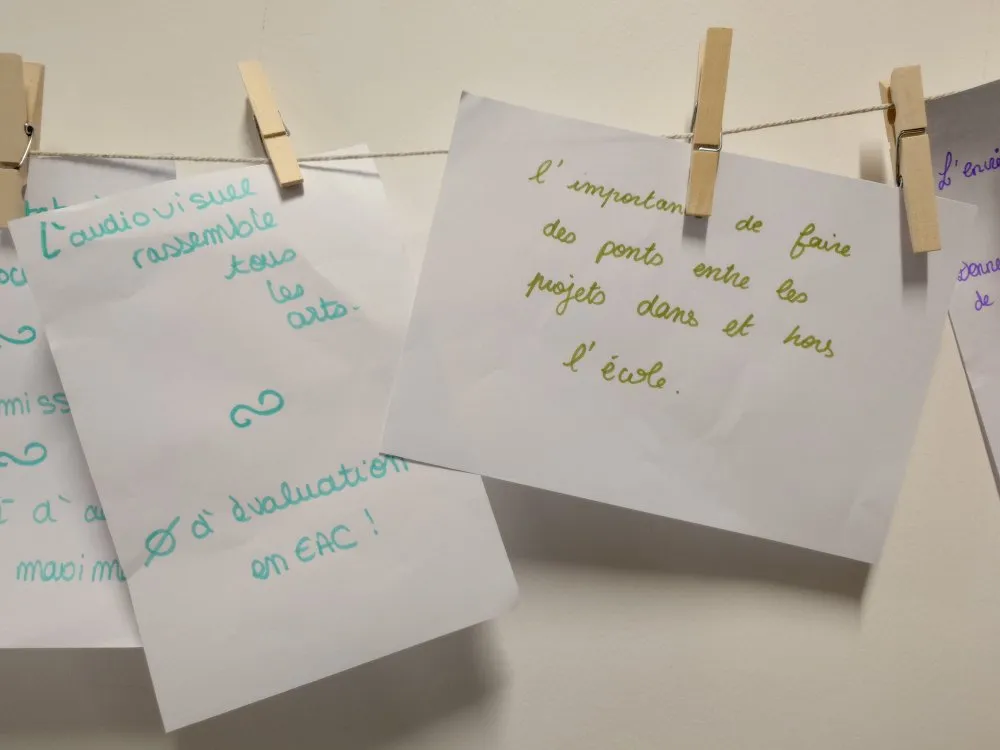 L'audiovisuel
rassemble
tous
les
arts.
Ø d'évaluation
en EAC !
l'importan de faire
des ponts entre les
projets dans et hors
l'école.
miss
maxim
L'envie
Donne
de